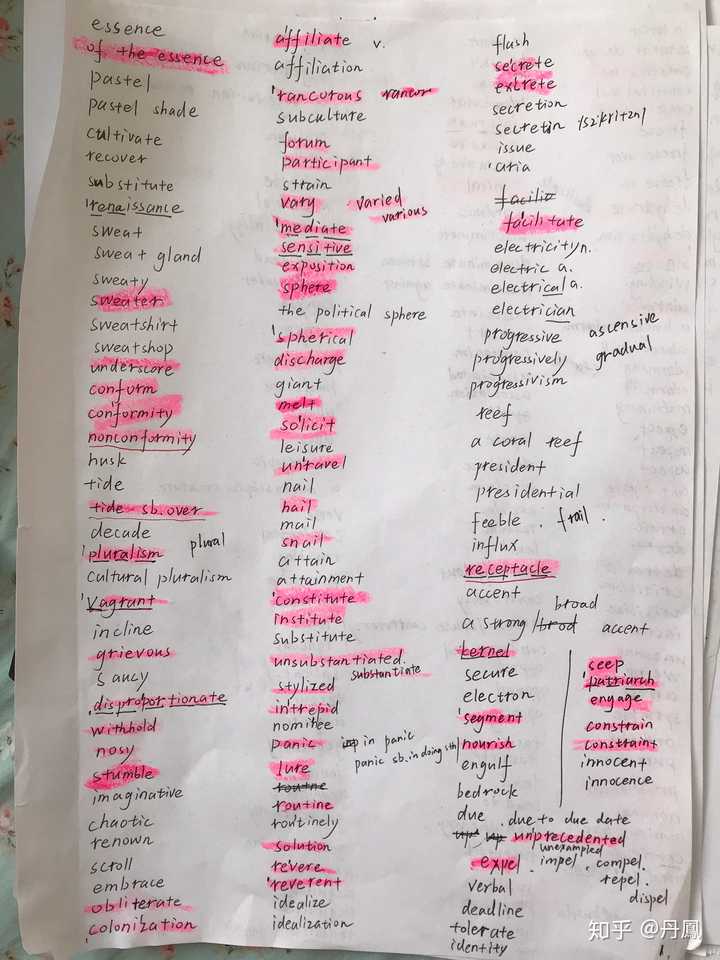 essence
of the essence
pastel
pastel shade
cultivate
recover
substitute
'renaissance
sweat
sweat gland
sweaty
sweater
sweatshirt
sweatshop
underscore
conform
conformity
nonconformity
husk
tide
tide sb. over
decade
'pluralism plural
cultural pluralism
'vagrant
incline
grievous
saucy
disproportionate
withhold
nosy
stumble
imaginative
chaotic
renown
scroll
embrace
obliterate
colonization
affiliate v.
affiliation
'rancorous rancor
subculture
forum
participant
strain
vary varied
various
'mediate
sensitive
exposition
sphere
the political sphere
'spherical
discharge
giant
melt
solicit
leisure
unravel
nail
hail
mail
snail
attain
attainment
'constitute
institute
substitute
unsubstantiated.
substantiate
stylized
intrepid
nominee
panic in panic
panic sb. in doing sth
lure
routine
routinely
solution
revere
'reverent
idealize
idealization
flash
secrete
excrete
secretion
secretin
issue
'aria
facilitate
electricity n.
electric a.
electrical a.
electrician
progressive ascensive
progressively gradual
progressivism
reef
a coral reef
president
presidential
feeble . frail .
influx
receptacle
accent
broad
a strong / brod accent
kernel
secure
electron
'segment
nourish
engulf
bedrock
seep
'patriarch
engage
constrain
constraint
innocent
innocence
due . due to due date
unprecedented
unexampled
expel . impel . compel .
repel .
dispel
verbal
deadline
tolerate
identity
知乎 @丹鳳